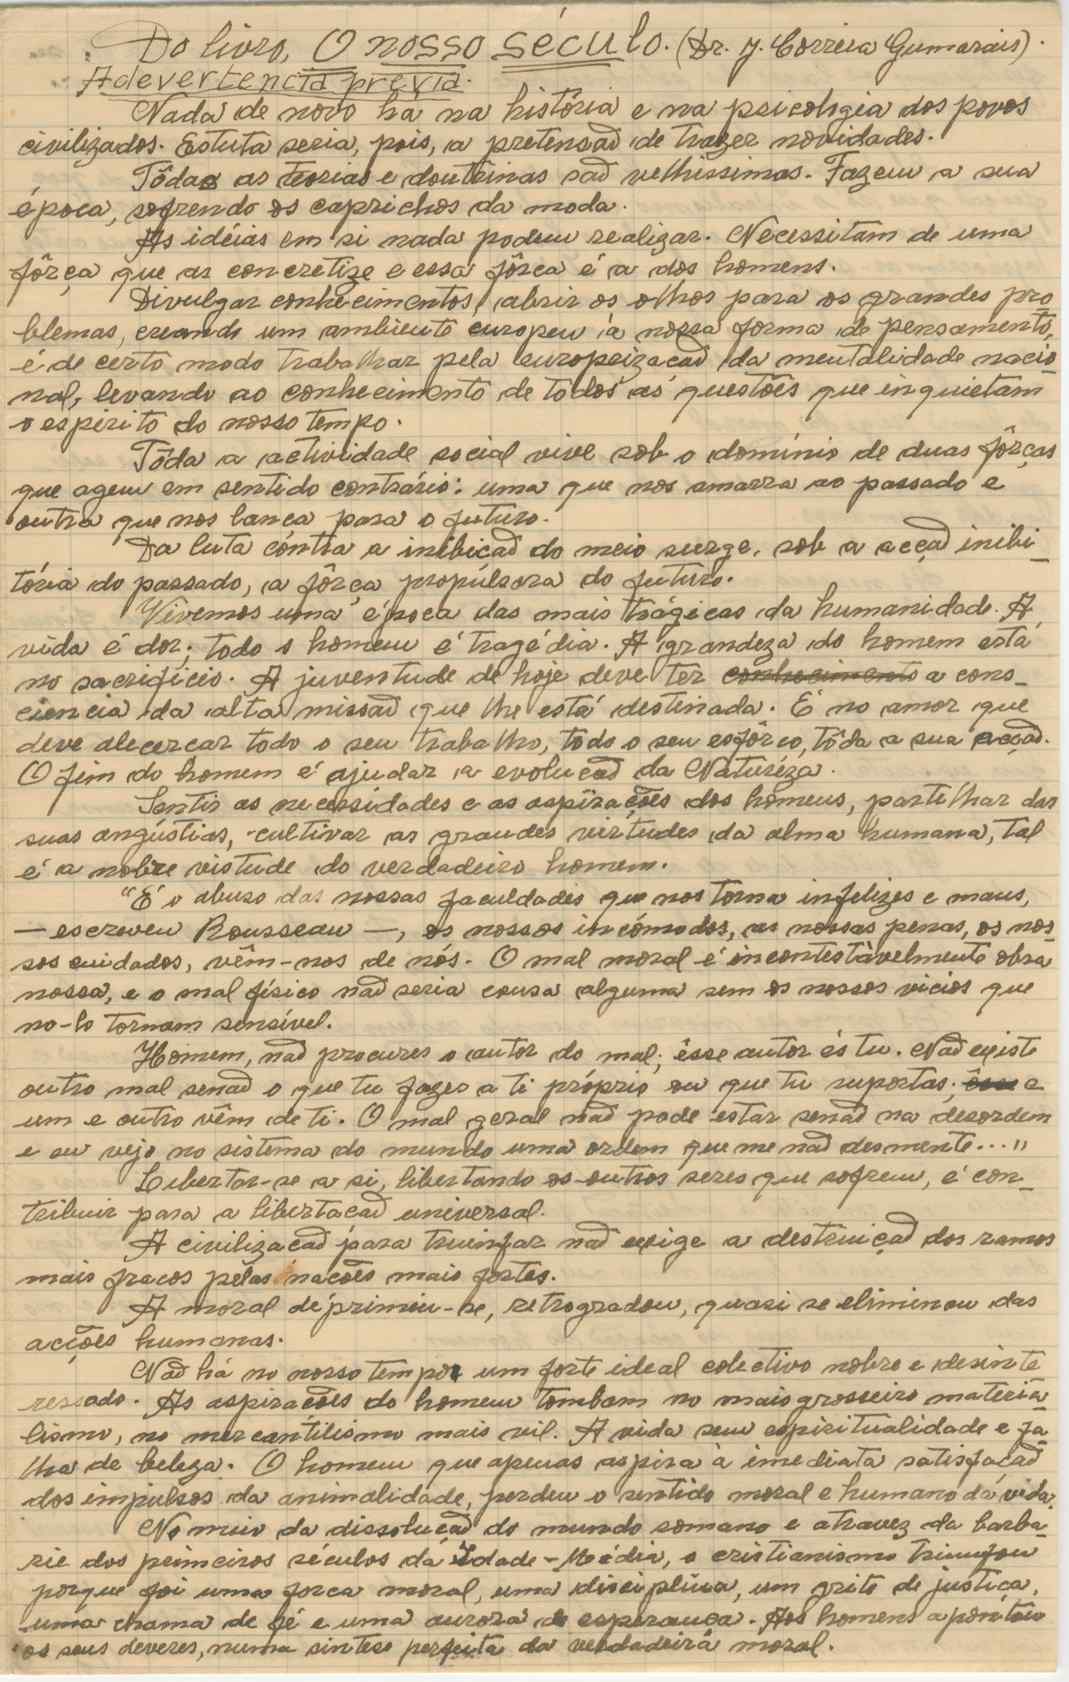 Do livro, O nosso século. (Dr. J. Correia Gumarais).
Adevertencia prévia.
Nada de novo ha na história e na psicologia dos povos
civilizados. Estulta seria, pois, a pretensaõ de trazer novidades.
Tôdas as teorias e doutrinas saõ velhissimas. Fazem a sua
época, sofrendo os caprichos da moda.
As idéias em si nada podem realizar. Necessitam de uma
fôrça que as concretize e essa fôrca é a dos homens.
Divulgar conhecimentos, abrir os olhos para os grandes pro_
blemas, creando um ambiente europeu á nossa forma de pensamento,
é de certo modo trabalhar pela europeizacaõ da mentalidade nacio_
nal, levando ao conhecimento de todos as questoẽs que inquietam
o espírito do nosso tempo.
Tôda a actividade social vive sob o domínio de duas fôrças
que agem em sentido contrário: uma que nos amarra ao passado e
outra que nos lanca para o futuro.
Da luta cóntra a inibicaõ do meio surge, sob a acçaõ inibi_
tória do passado, a fôrça propulsora do futuro.
Vivemos uma época das mais trágicas da humanidade. A
vida é dor; todo o homem é tragédia. A grandeza do homem está
no sacrifício. A juventude de hoje deve ter conhecimento a cons_
ciencia da alta missaõ que lhe está destinada. É no amor que
deve alecercar todo o seu trabalho, todo o seu esfôrco, tôda a sua acçaõ.
O fim do homem é ajudar a evolucaõ da Naturéza.
Sentir as necessidades e as aspiraçoẽs dos homens, partilhar das
suas angústias, cultivar as grandes virtudes da alma humana, tal
é a nobre vistude do verdadeiro homem.
"É o abuso das nossas faculdades que nos torna infelizes e maus,
— escreveu Rousseau —, os nossos incómodos, as nossas penas, os nos_
sos cuidados, vêm-nos de nós. O mal moral é incontestàvelmente obra
nossa, e o mal físico naõ seria cousa alguma sem os nossos vicios que
no-lo tornam sensível.
Homem, naõ procures o autor do mal; êsse autor és tu. Naõ existe
outro mal senaõ o que tu fazes a ti próprio ou que tu suportas; êsse e
um e outro vêm de ti. O mal geral naõ pode estar senaõ na desordem
e eu vejo no sistema do mundo uma ordem que me naõ desmente..."
Libertar-se a si, libertando os outros seres que sofrem, é con_
tribuir para a libertacaõ universal.
A civilizacaõ para triunfar naõ exige a destruiçaõ dos ramos
mais fracos pelas nacoẽs mais fortes.
A moral déprimiu-se, retrogradou, quasi se eliminou das
acçoẽs humanas.
Naõ há no nosso tempo um forte ideal colectivo nobre e desinte
ressado. As aspiracoẽs do homem tombam no mais grosseiro materia_
lismo, no mercantilismo mais vil. A vida sem espiritualidade e fa_
lha de beleza. O homem que apenas aspira à imediata satisfacaõ
dos impulsos da animalidade, perdeu o sentido moral e humano da vida.
No meio da dissolucaõ do mundo romano e atravez da barba_
rie dos primeiros séculos da Idade-Média, o cristianismo triunfou
porque foi uma forca moral, uma disciplina, um grito de justica,
uma chama de fé e uma aurora de esperanca. Aos homens apontou
os seus deveres, numa sintese perfeita da verdadeira moral.